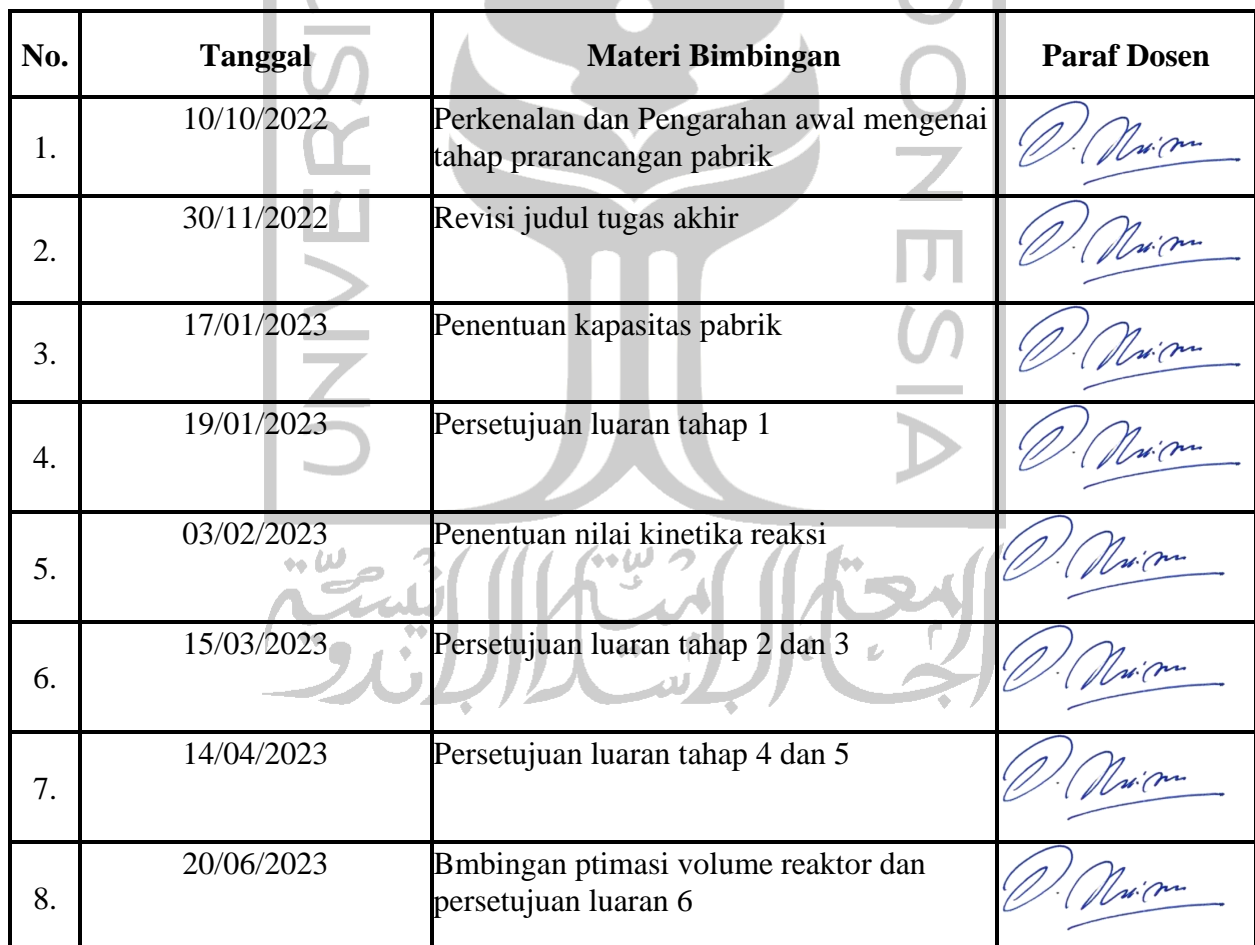 No. Tanggal Materi Bimbingan Paraf Dosen
1. 10/10/2022 Perkenalan dan Pengarahan awal mengenai
tahap prarancangan pabrik
2. 30/11/2022 Revisi judul tugas akhir
3. 17/01/2023 Penentuan kapasitas pabrik
4. 19/01/2023 Persetujuan luaran tahap 1
5. 03/02/2023 Penentuan nilai kinetika reaksi
6. 15/03/2023 Persetujuan luaran tahap 2 dan 3
7. 14/04/2023 Persetujuan luaran tahap 4 dan 5
8. 20/06/2023 Bmbingan ptimasi volume reaktor dan
persetujuan luaran 6